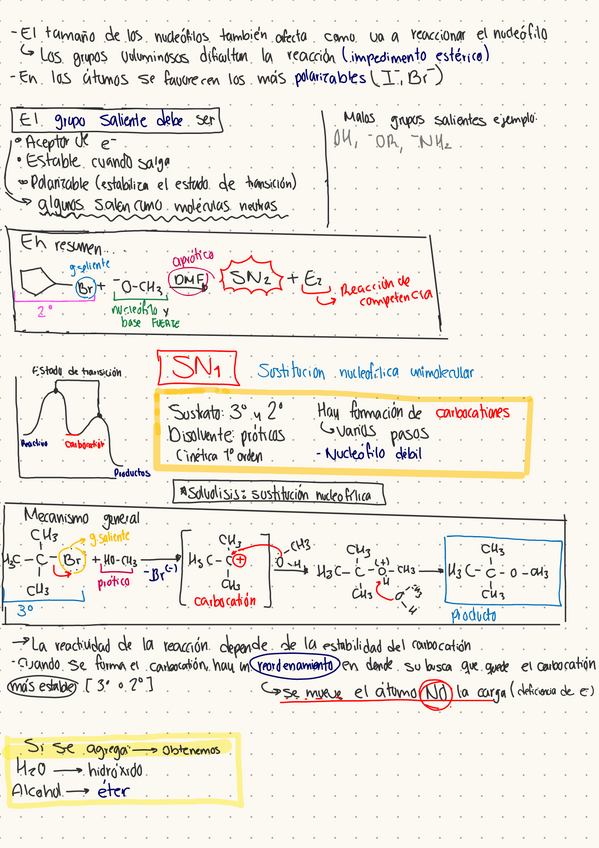 -El tamaño de los nucleófilos también afecta como va a reaccionar el nucleófilo
↳ Los grupos voluminosos dificultan la reacción (impedimento estérico)
-En los átomos se favorecen los más polarizables (I⁻, Br⁻)
El grupo saliente debe ser
• Aceptor de e⁻
• Estable cuando salga
• Polarizable (estabiliza el estado de transición)
→ algunos salen como moléculas neutras
Malos grupos salientes ejemplo:
OH, ⁻OR, ⁻NH₂
En resumen...
g saliente
aprótico
Br + ⁻O-CH₃ DMF SN₂ + E₂
2°
nucleófilo y
base FUERTE
Reacción de
competencia
SN₁ Sustitución nucleofílica unimolecular
Estado de transición
Reactivo
Carbocatión
Productos
Sustrato: 3° y 2°
Disolvente: próticos
Cinética 1° orden
Hay formación de carbocationes
↳ Varios pasos
- Nucleófilo débil
*Solvolisis: sustitución nucleofílica
Mecanismo general
g saliente
CH₃ CH₃ CH₃ CH₃ CH₃
H₃C-C-Br + HO-CH₃ -Br(-) H₃C-C⊕ O-H H₃C-C-O-CH₃ H₃C-C-O-CH₃
(+)
H
CH₃ CH₃ CH₃ CH₃
prótico
carbocatión
3°
producto
→ La reactividad de la reacción depende de la estabilidad del carbocatión
-Cuando se forma el carbocatión, hay un reordenamiento en donde su busca que quede el carbocatión
más estable [3° o 2°]
↳ se mueve el átomo NO la carga (deficiencia de e⁻)
Si se agrega → Obtenemos
H₂O → hidróxido
Alcohol → éter